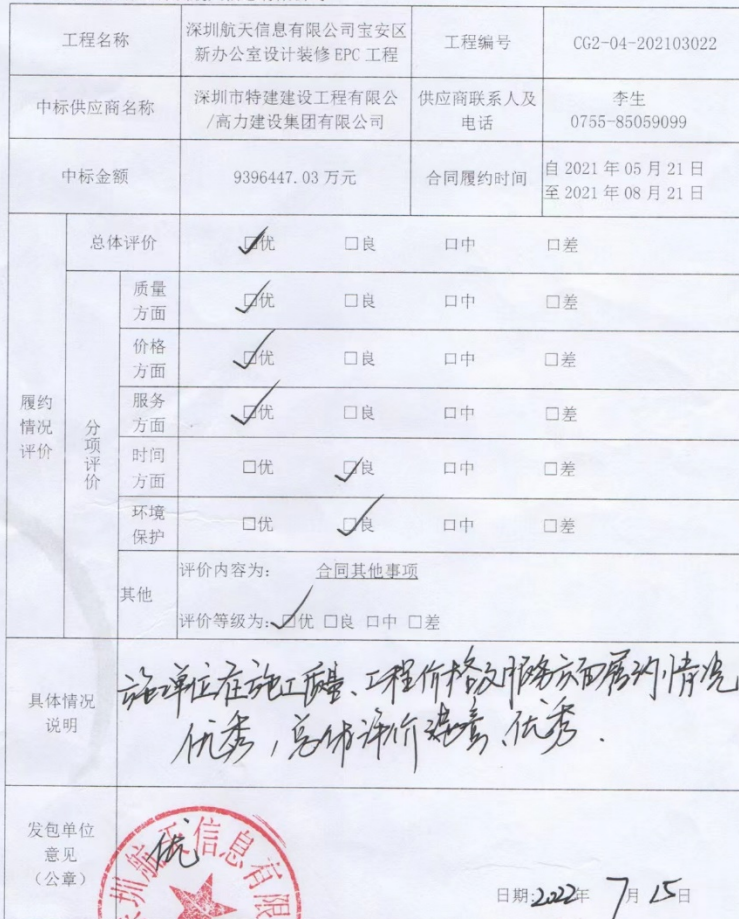 工程名称
深圳航天信息有限公司宝安区
新办公室设计装修 EPC 工程
工程编号
CG2-04-202103022
中标供应商名称
深圳市特建建设工程有限公
/高力建设集团有限公司
供应商联系人及
电话
李生
0755-85059099
中标金额
9396447.03 万元
合同履约时间
自 2021 年 05 月 21 日
至 2021 年 08 月 21 日
履约
情况
评价
总体评价
☑优 □良 口中 □差
分项评价
质量
方面
☑优 □良 口中 □差
价格
方面
☑优 □良 口中 □差
服务
方面
☑优 □良 口中 □差
时间
方面
□优 ☑良 口中 □差
环境
保护
□优 ☑良 口中 □差
其他
评价内容为： 合同其他事项
评价等级为：☑优 □良 口中 □差
具体情况
说明
施工单位在施工质量、工程价格及服务方面履约情况
优秀，总体评价满意、优秀.
发包单位
意见
（公章）
优
深圳航天信息有限
日期:2022年 7月 15日